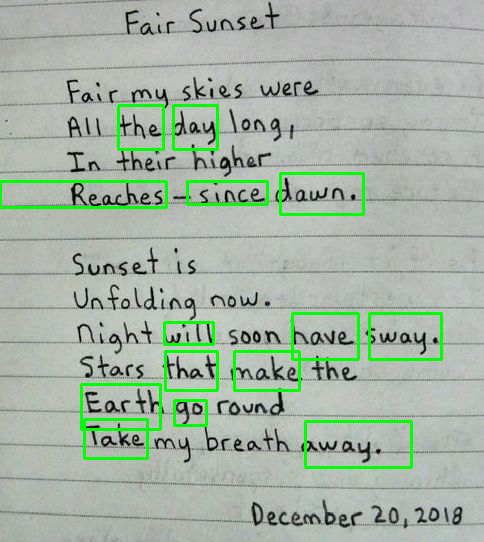 Fair Sunset
Fair my skies were
All the day long,
In their higher
Reaches – since dawn.
Sunset is
Unfolding now.
Night will soon have sway.
Stars that make the
Earth go round
Take my breath away.
December 20, 2018